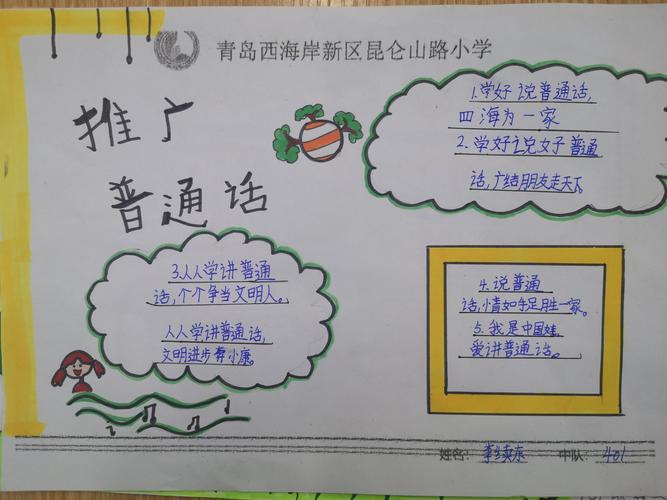 青岛西海岸新区昆仑山路小学
推广
普通话
1.学好说普通话,
四海为一家
2.学好说好普通
话,广结朋友走天下
3.人人学讲普通
话,个个争当文明人。
人人学讲普通话,
文明进步奔小康。
4.说普通
话,情如手足胜一家。
5.我是中国娃,
爱讲普通话。
姓名: 中队: 401